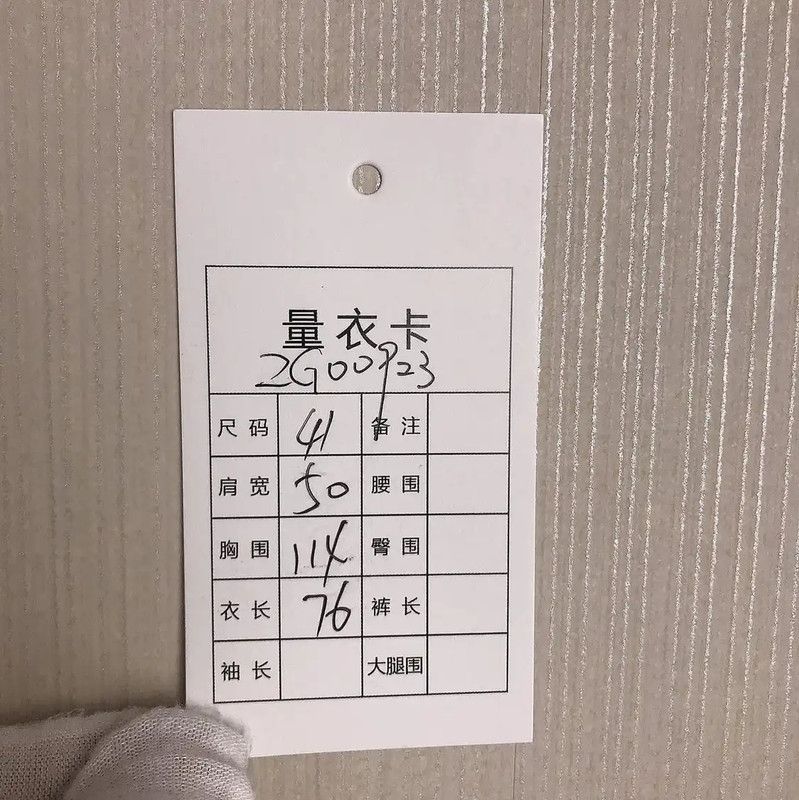 量衣卡
2G00923
尺码 41 备注
肩宽 50 腰围
胸围 114 臀围
衣长 76 裤长
袖长 大腿围